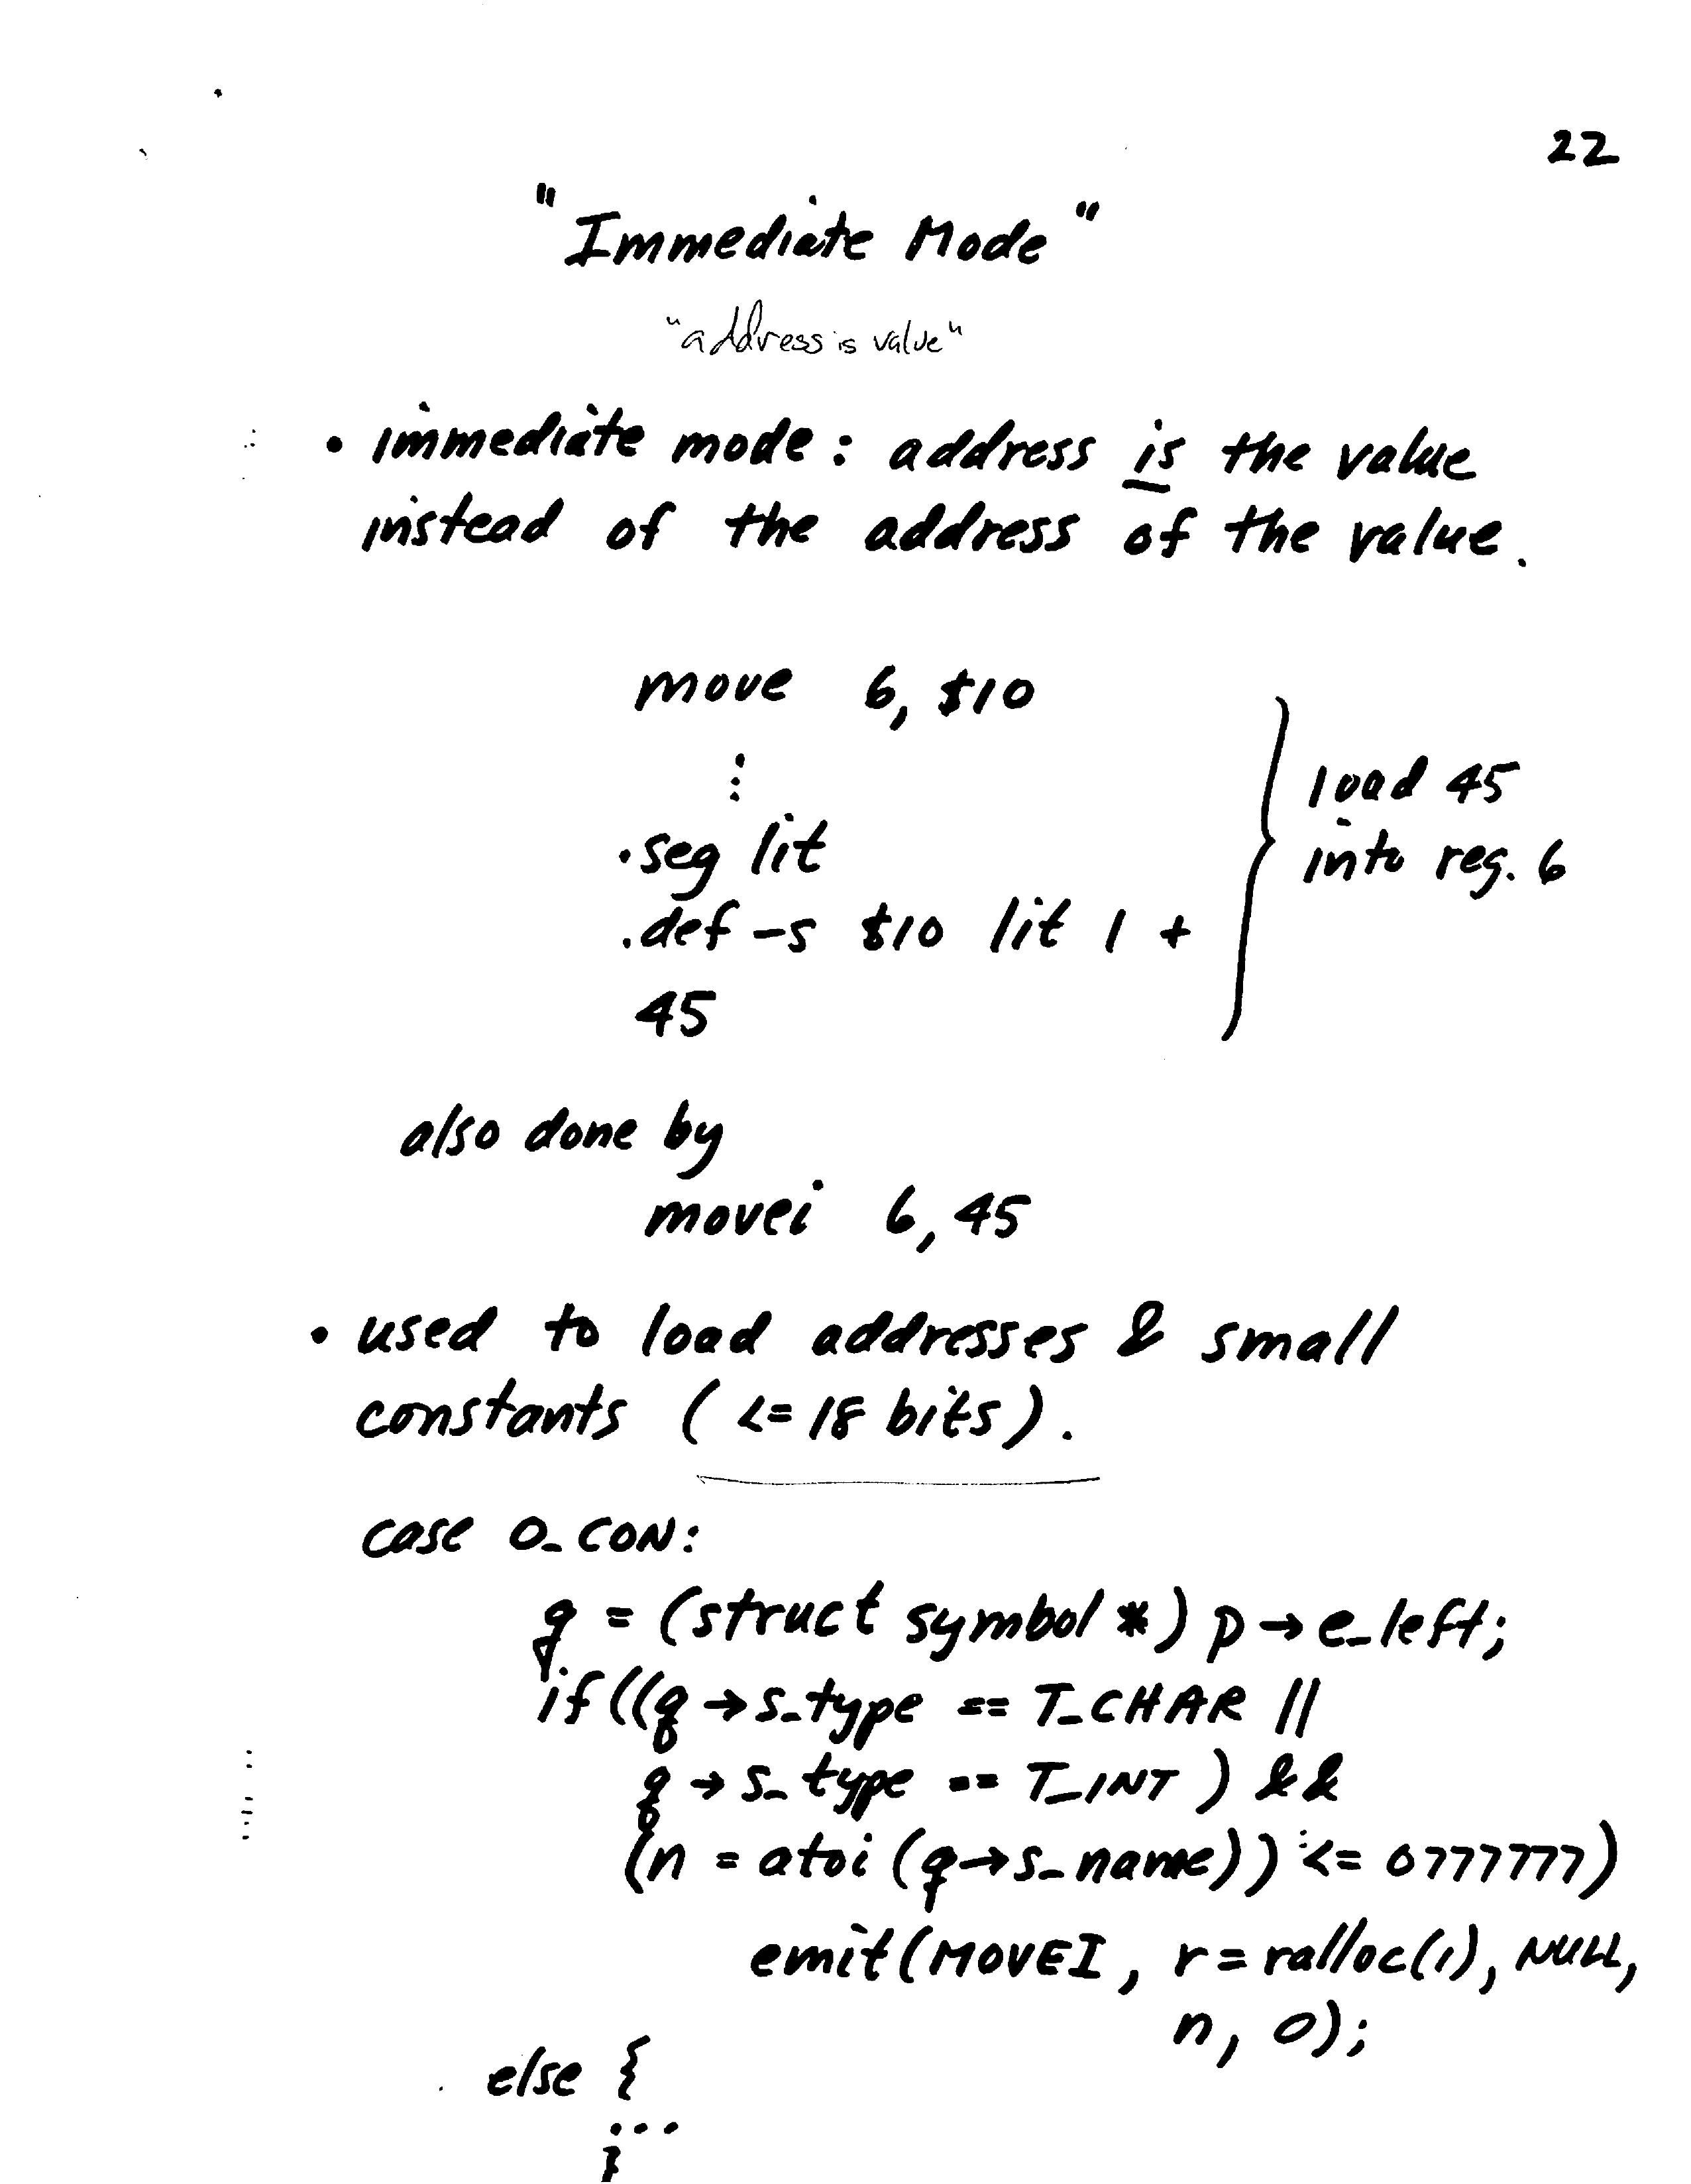 22
"Immediate Mode"
"address is value"
• immediate mode: address is the value
instead of the address of the value.
move 6, $10
⋮
.seg lit
.def -s $10 lit 1 +
45
load 45
into reg. 6
also done by
movei 6, 45
• used to load addresses & small
constants (<= 18 bits).
case O_CON:
q = (struct symbol *) p→e_left;
if((q→s_type == T_CHAR ||
q→s_type == T_INT) &&
(n = atoi(q→s_name)) <= 0777777)
emit(MOVEI, r = ralloc(1), NULL,
n, 0);
else {
...
}